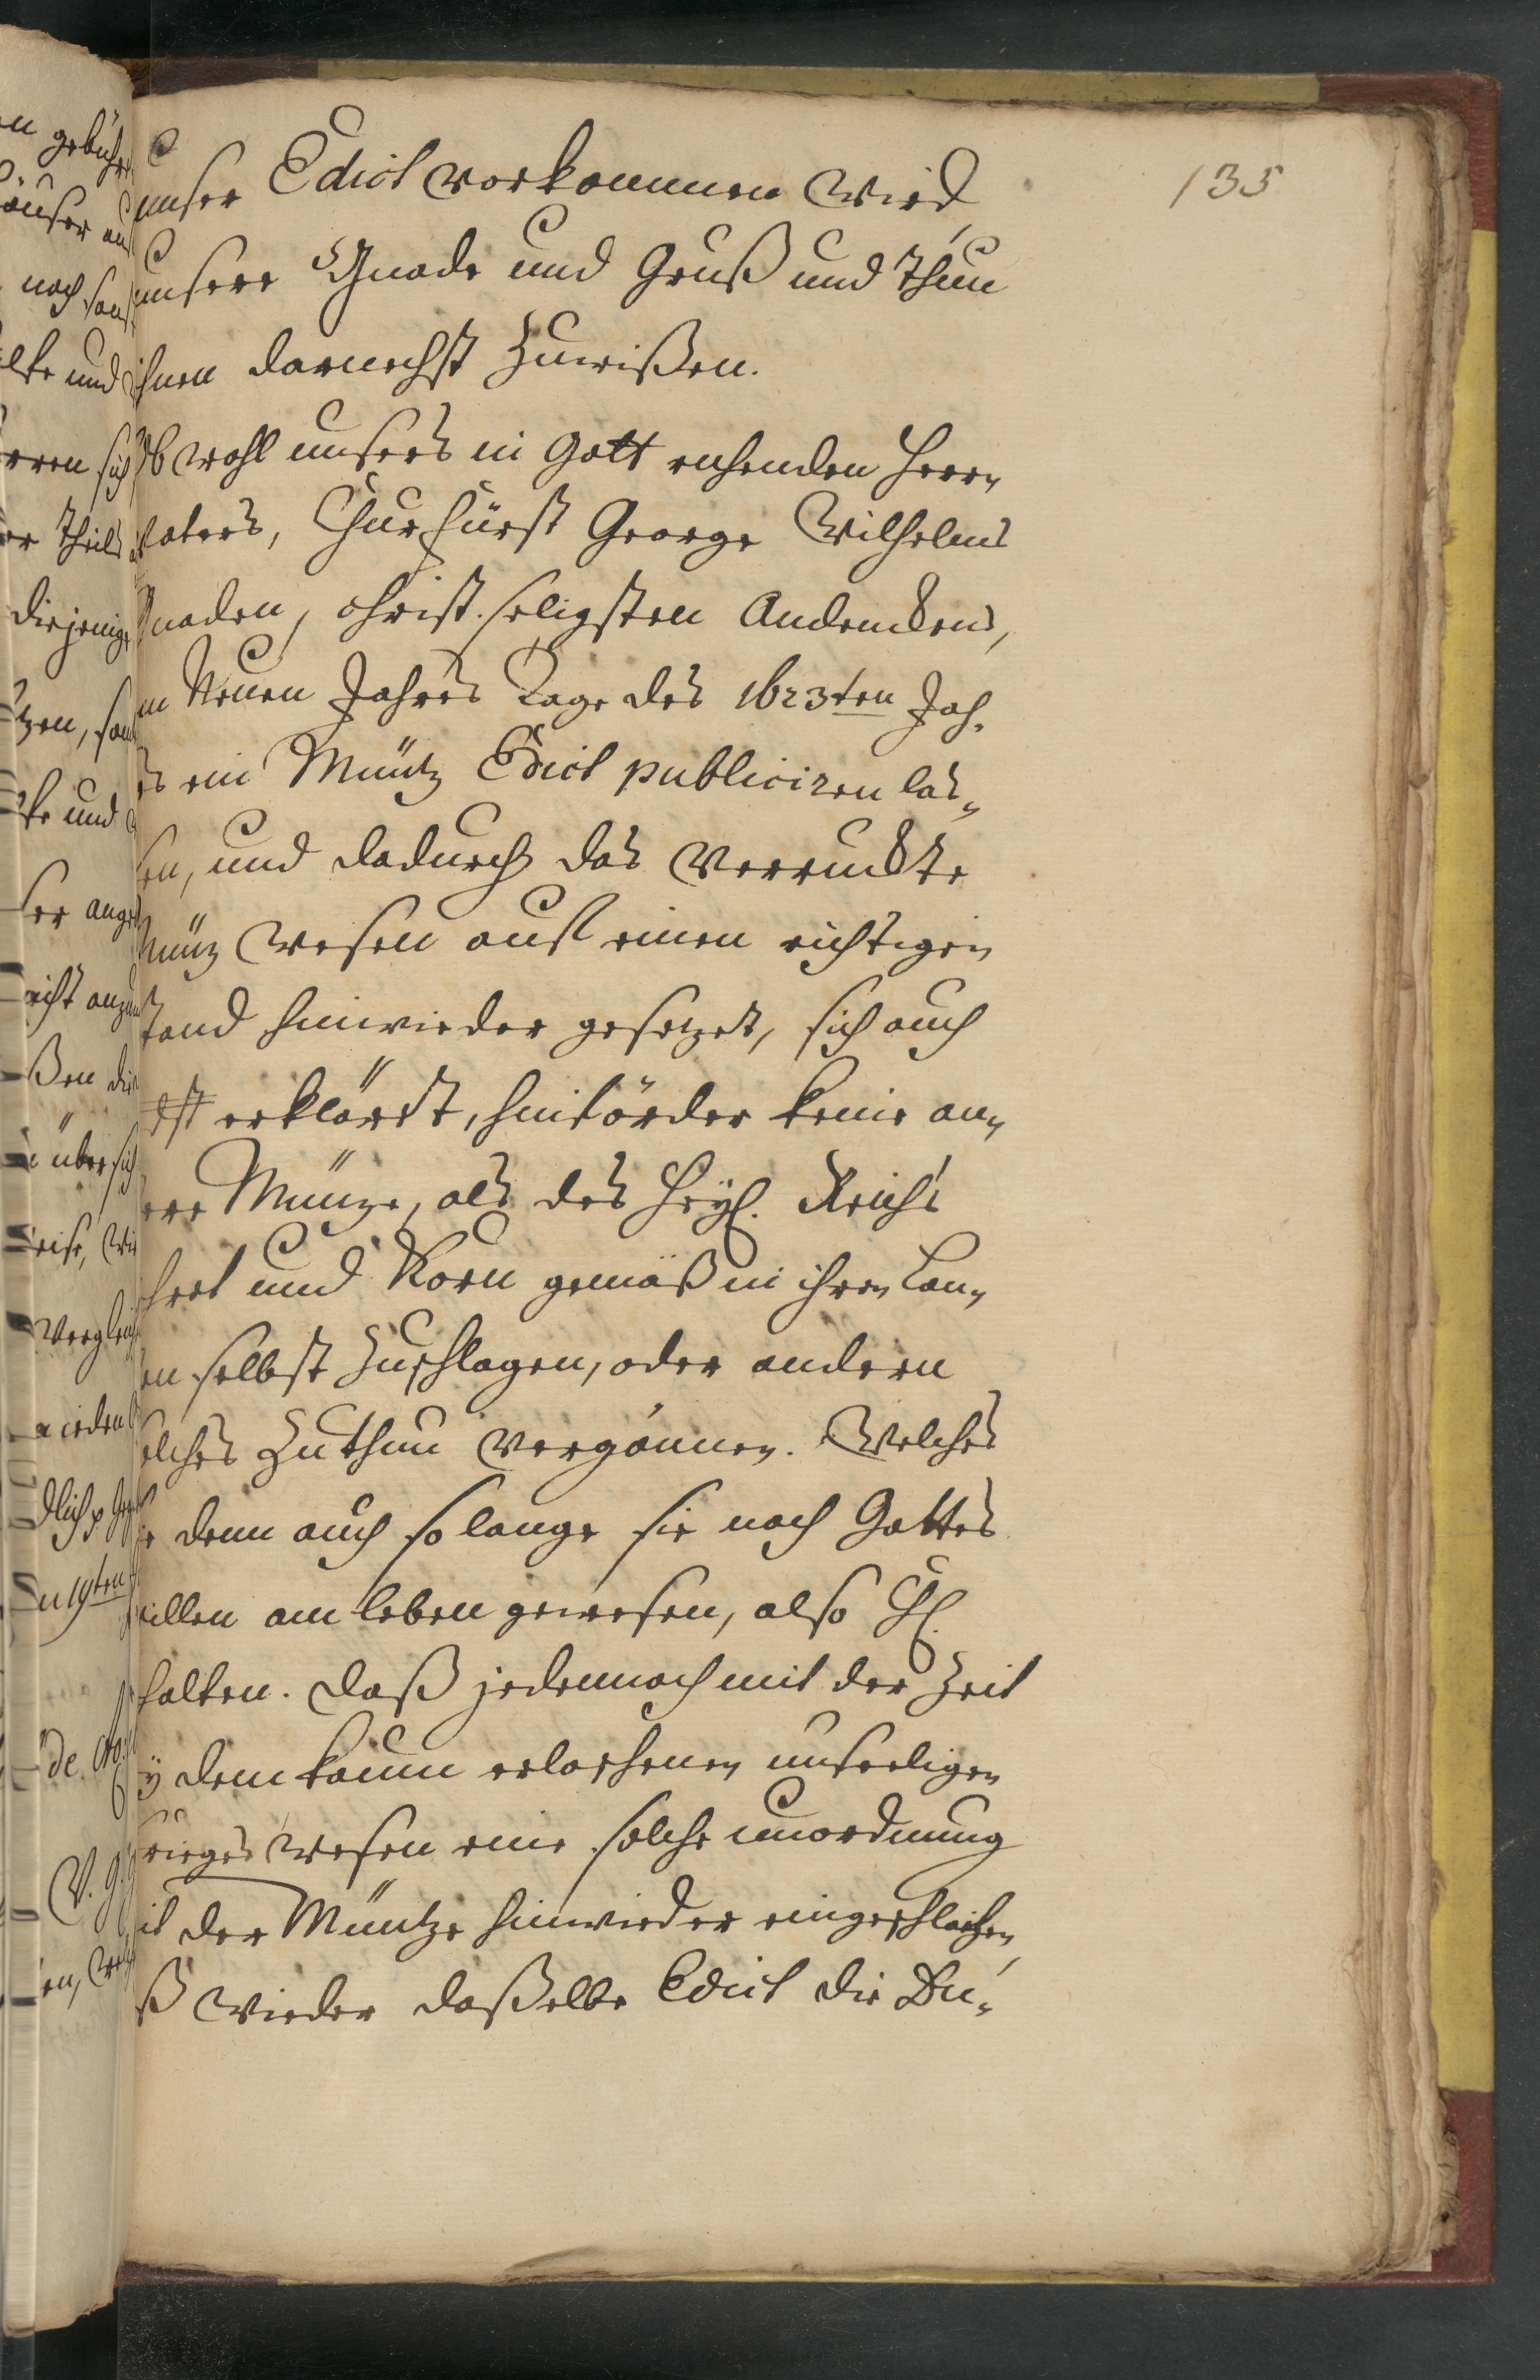 135
unser Edict vorkommen wird,
unsere Gnade und Gruß und thun
ihnen darnechst zuwißen.
Ob wohl unsers in Gott ruhenden Herrn
Vaters, Churfürst George Wilhelms
Gnaden, christ. seligsten Andenckens,
m Neuen Jahres Tage des 1623ten Jah-
es ein Müntz Edict publiciren las-
sen, und dadurch das verruckte
Müntz wesen auff einen richtigen
tand hinwieder gesetzet, sich auch
erklärt, hinförder keine an-
ere Müntze, als des Heyl. Reichs
hrot und Korn gemäß in ihren Lan-
en selbst zuschlagen, oder andern
olches zuthun vergönnen. Welches
ie denn auch so lange sie nach Gottes
willen am leben gewesen, also
halten. Daß jedennoch mit der Zeit
ÿ dem kaum erloschenen unseeligen
rieges wesen eine solche unordnung
it der Müntze hinwieder eingeschlichen,
ß wieder daßelbe Edict die Du-